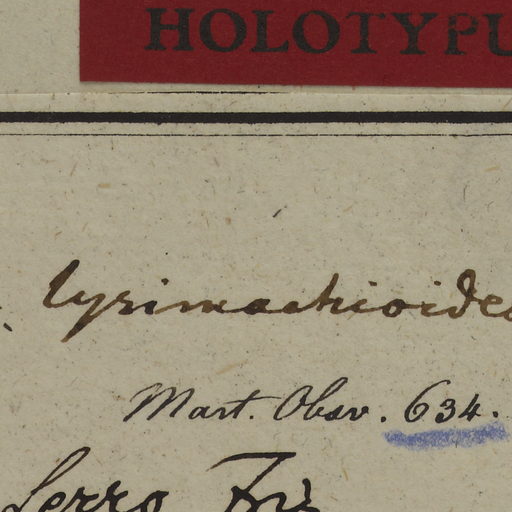 HOLOTYPU
lysimachioides
Mart. Obsv. 634.
Serro Frio